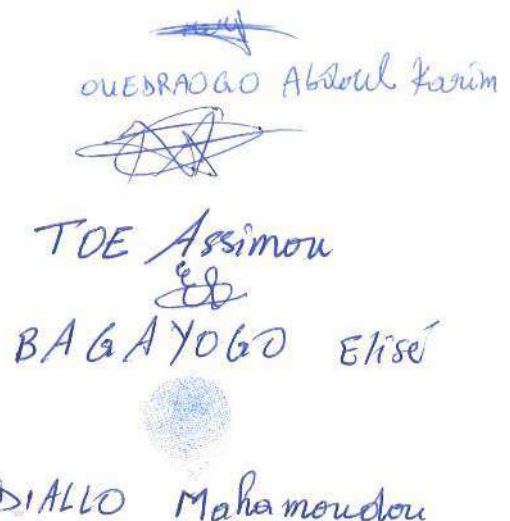 OUEDRAOGO Abdoul Karim
TOE Assimou
BAGAYOGO Elisé
DIALLO Mahamoudou